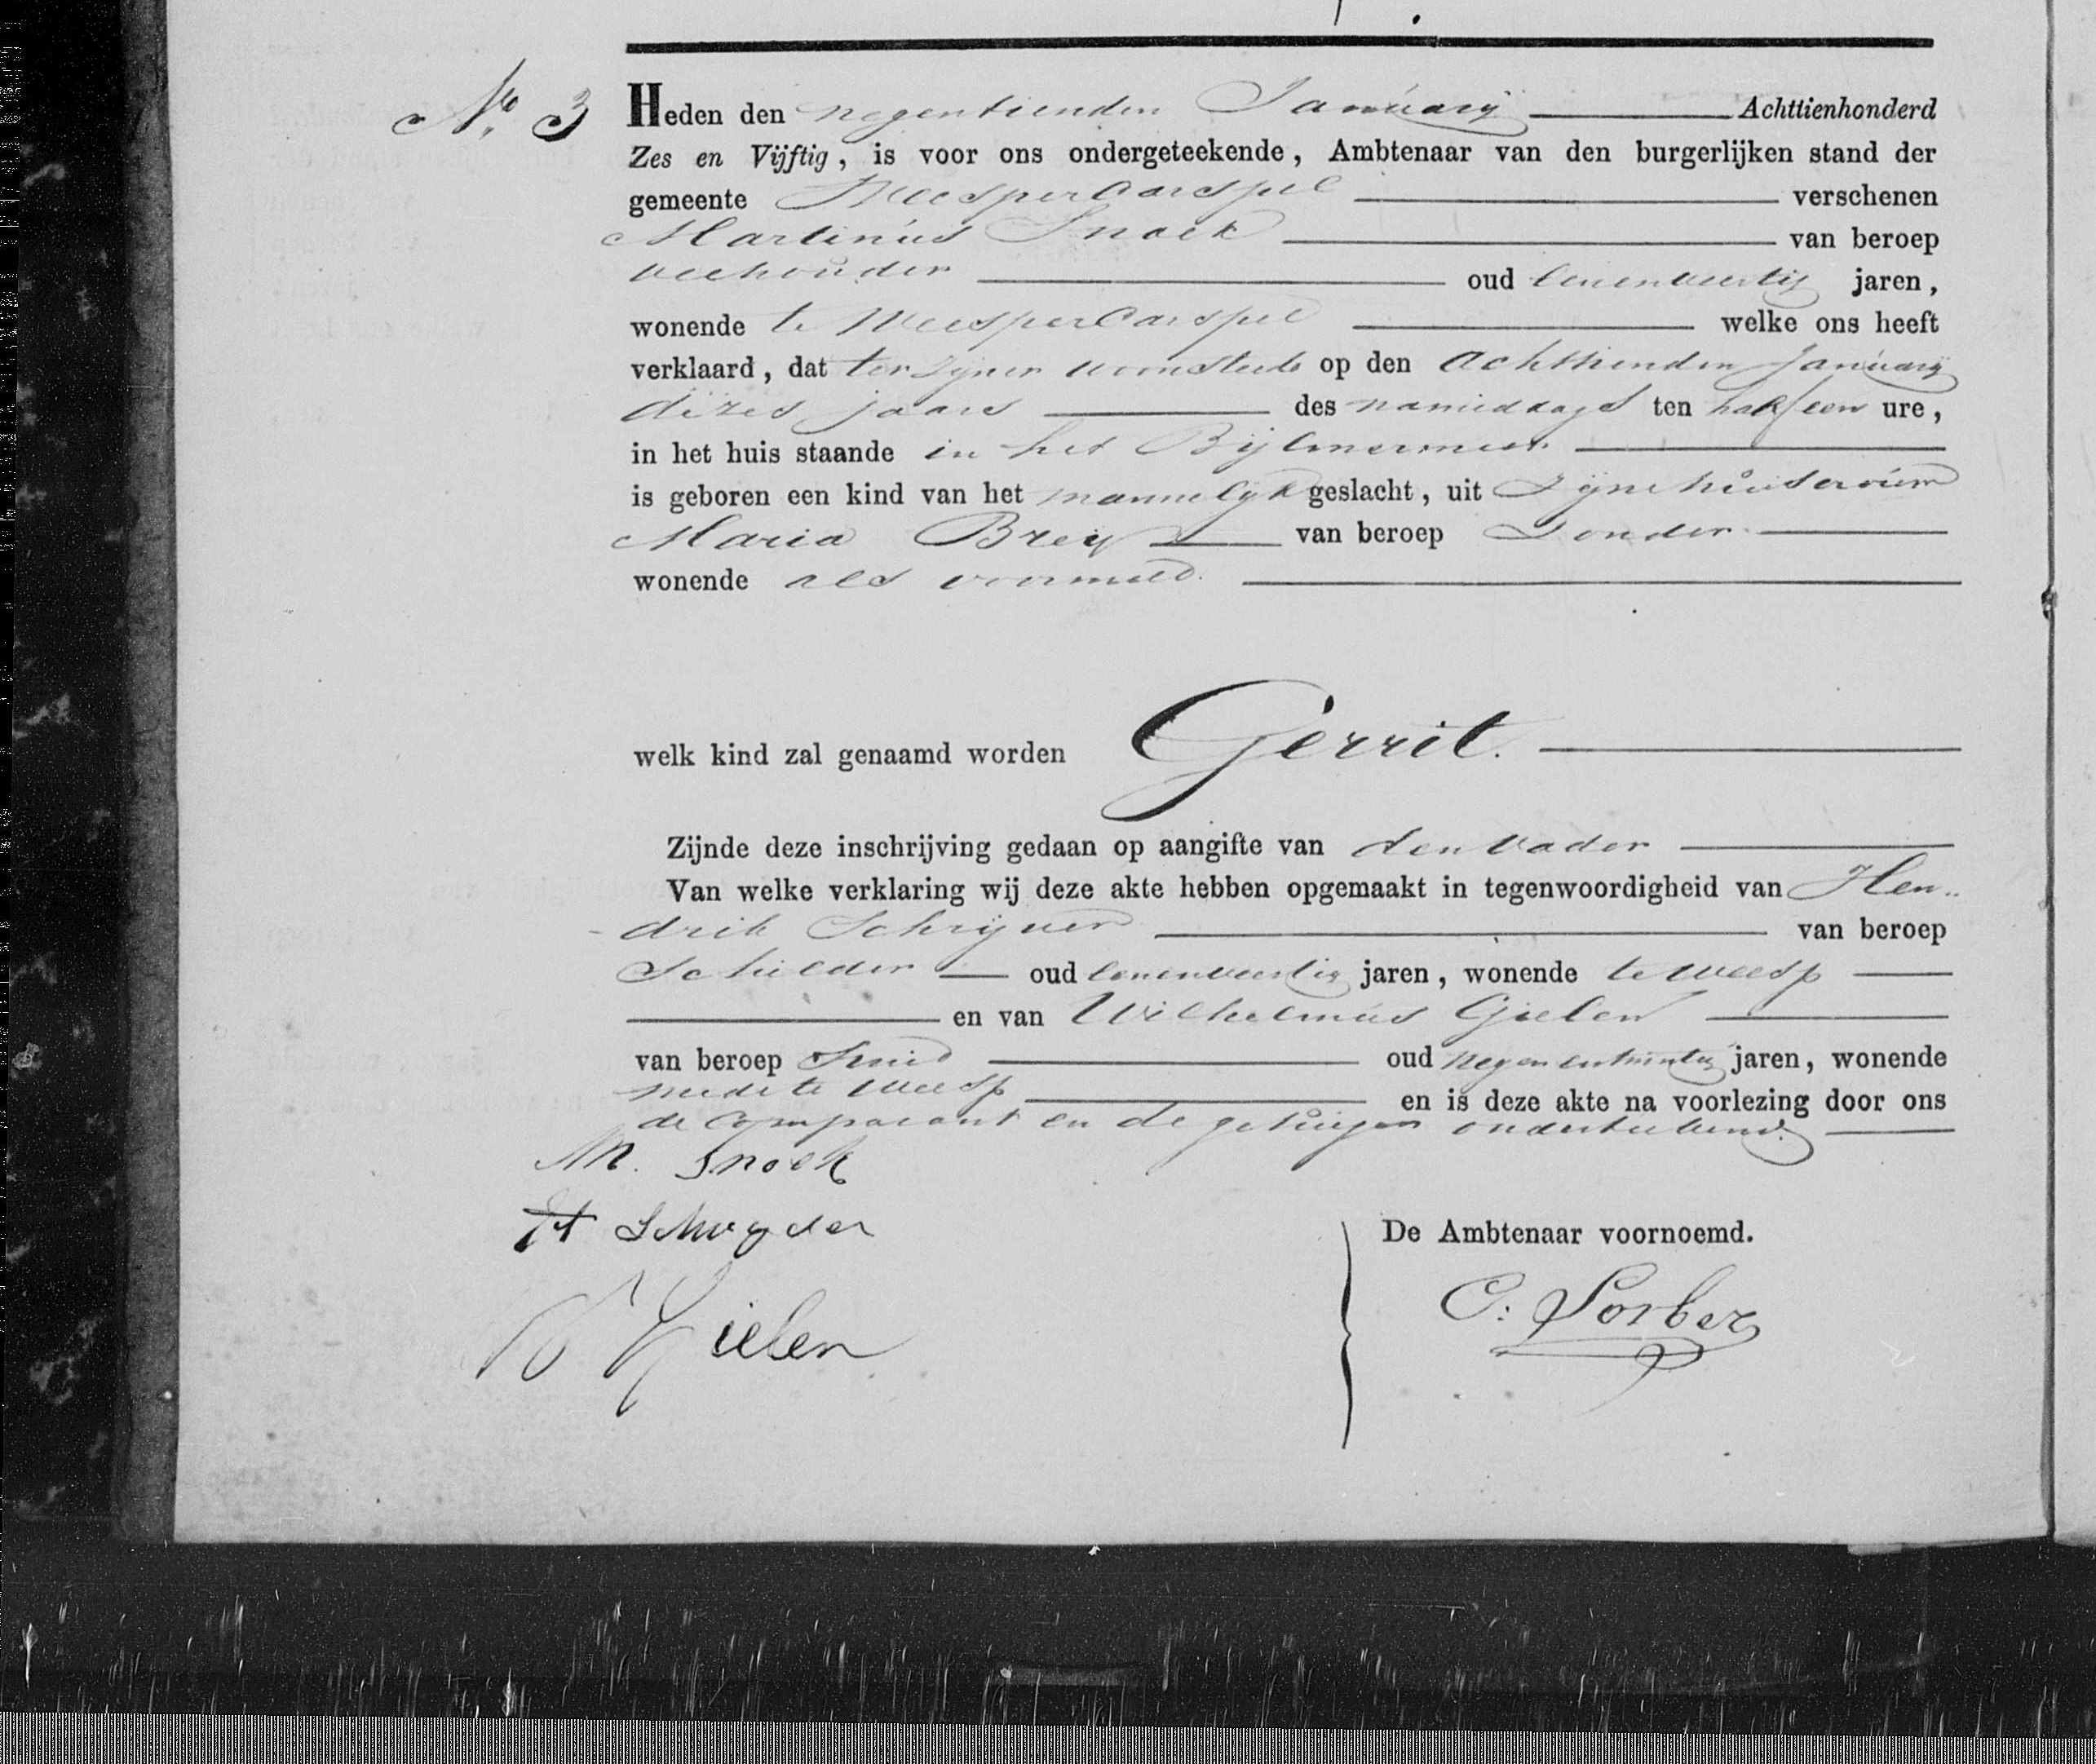 No. 3 Heden den negentienden Januarij Achttienhonderd
Zes en Vijftig, is voor ons ondergeteekende, Ambtenaar van den burgerlijken stand der
gemeente Weespercarspel verschenen
Martinus Snoek van beroep
veehouder oud eenenveertig jaren,
wonende te Weespercarspel welke ons heeft
verklaard, dat ter zijner woonstede op den achttienden Januarij
dezes jaars des namiddags ten half een ure,
in het huis staande in het Bijlmermeer
is geboren een kind van het mannelijk geslacht, uit zijne huisvrouw
Maria Breij van beroep zonder
wonende als voormeld.
welk kind zal genaamd worden Gerrit.
Zijnde deze inschrijving gedaan op aangifte van den vader
Van welke verklaring wij deze akte hebben opgemaakt in tegenwoordigheid van Hen-
drik Schrijver van beroep
Schilder oud eenenveertig jaren, wonende te Weesp
en van Wilhelmus Gielen
van beroep Smid oud jaren, wonende
mede te Weesp en is deze akte na voorlezing door ons
de comparant en de getuigen onderteekend.
M. Snoek
H Schryver
W Gielen
De Ambtenaar voornoemd.
C: Sorber